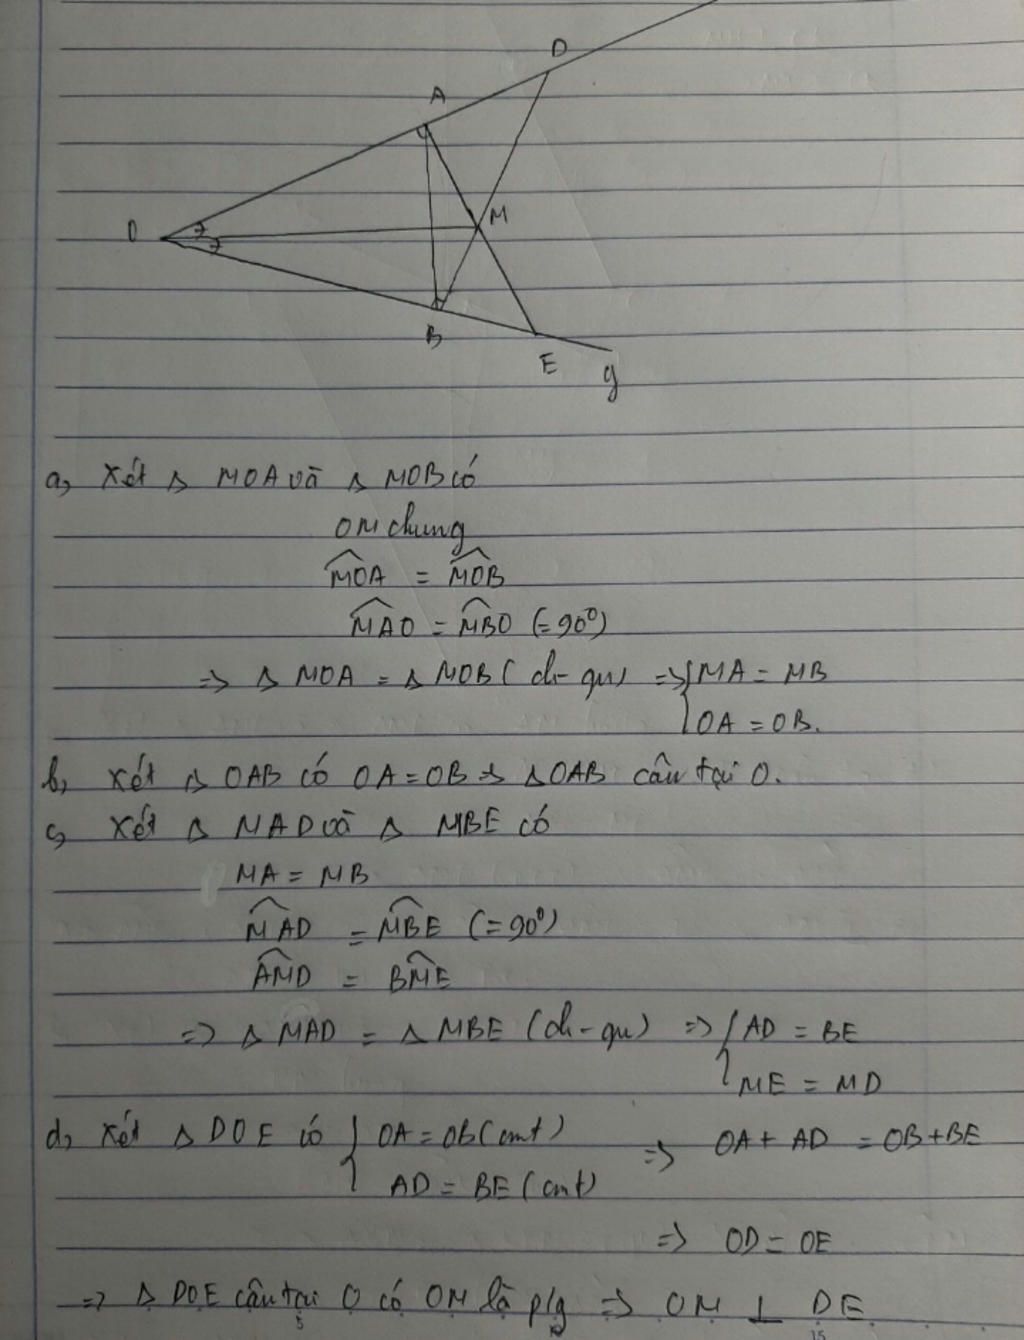 D
A
O
M
B
E
y
a, Xét Δ MOA và Δ MOB có
OM chung
$\widehat{MOA}$ = $\widehat{MOB}$
$\widehat{MAO}$ = $\widehat{MBO}$ (=90⁰)
=> Δ MOA = Δ MOB (ch-gn) => { MA = MB
OA = OB.
b, Xét Δ OAB có OA = OB => ΔOAB cân tại O.
c, Xét Δ MAD và Δ MBE có
MA = MB
$\widehat{MAD}$ = $\widehat{MBE}$ (=90⁰)
$\widehat{AMD}$ = $\widehat{BME}$
=> Δ MAD = Δ MBE (ch-gn) => { AD = BE
ME = MD
d, Xét Δ DOE có { OA = OB (cmt) => OA + AD = OB + BE
AD = BE (cmt)
=> OD = OE
=> Δ DOE cân tại O có OM là p/g => OM ⊥ DE